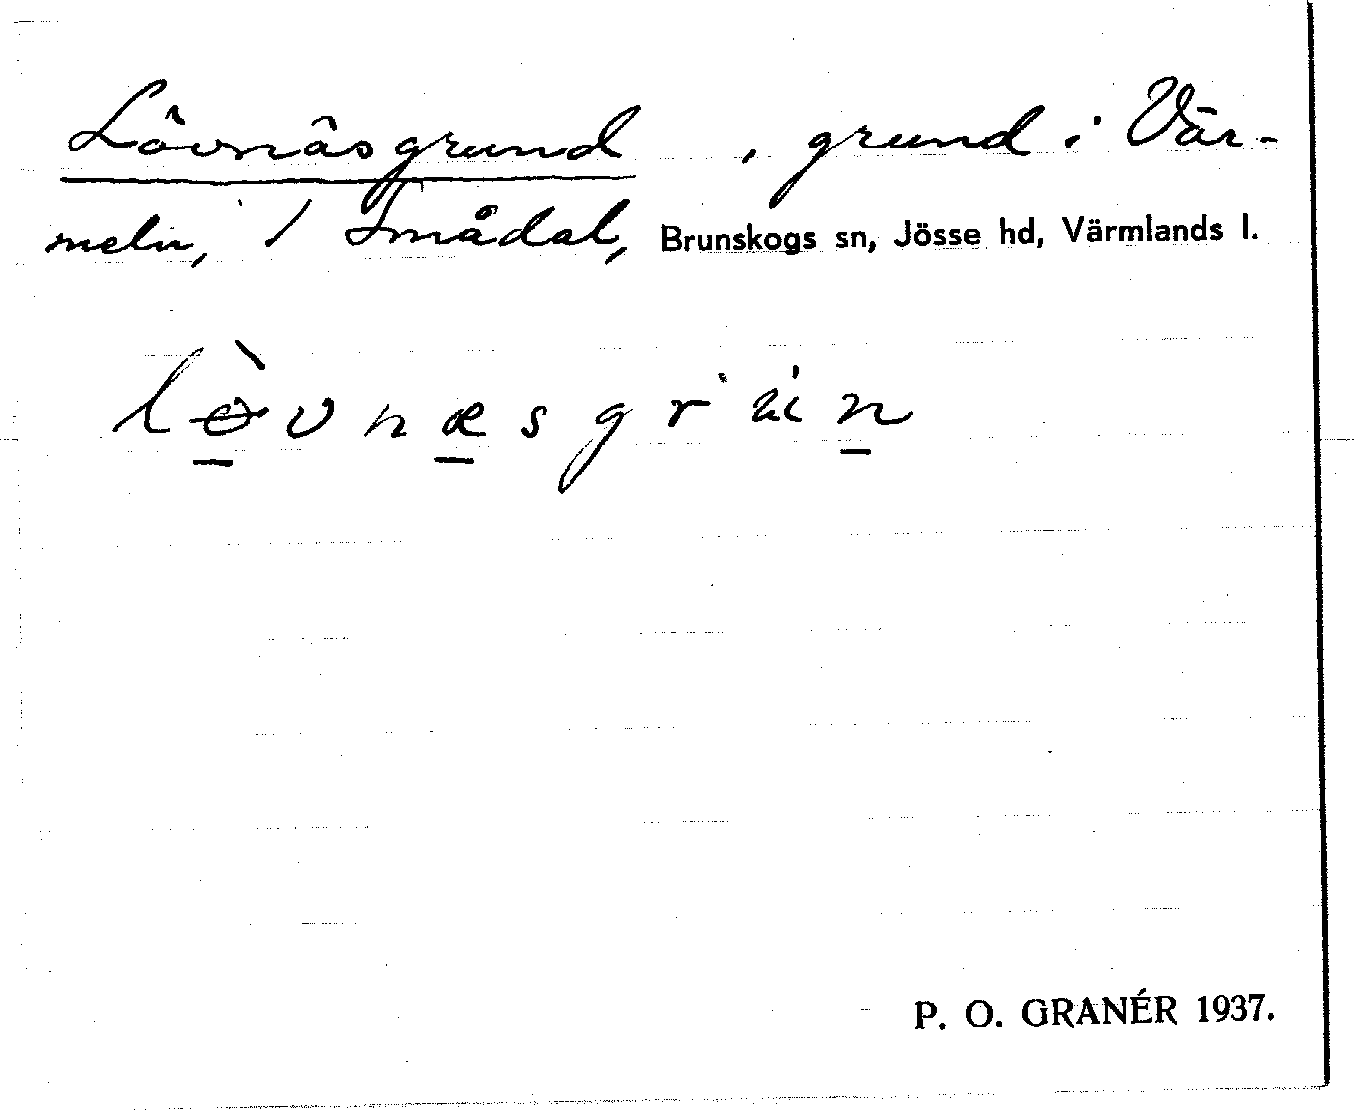 Lövnäsgrund, grund i Vär-
meln, 1 Smådal, Brunskogs sn, Jösse hd, Värmlands l.
lɵ̀vnæsgrún
P. O. GRANÉR 1937.